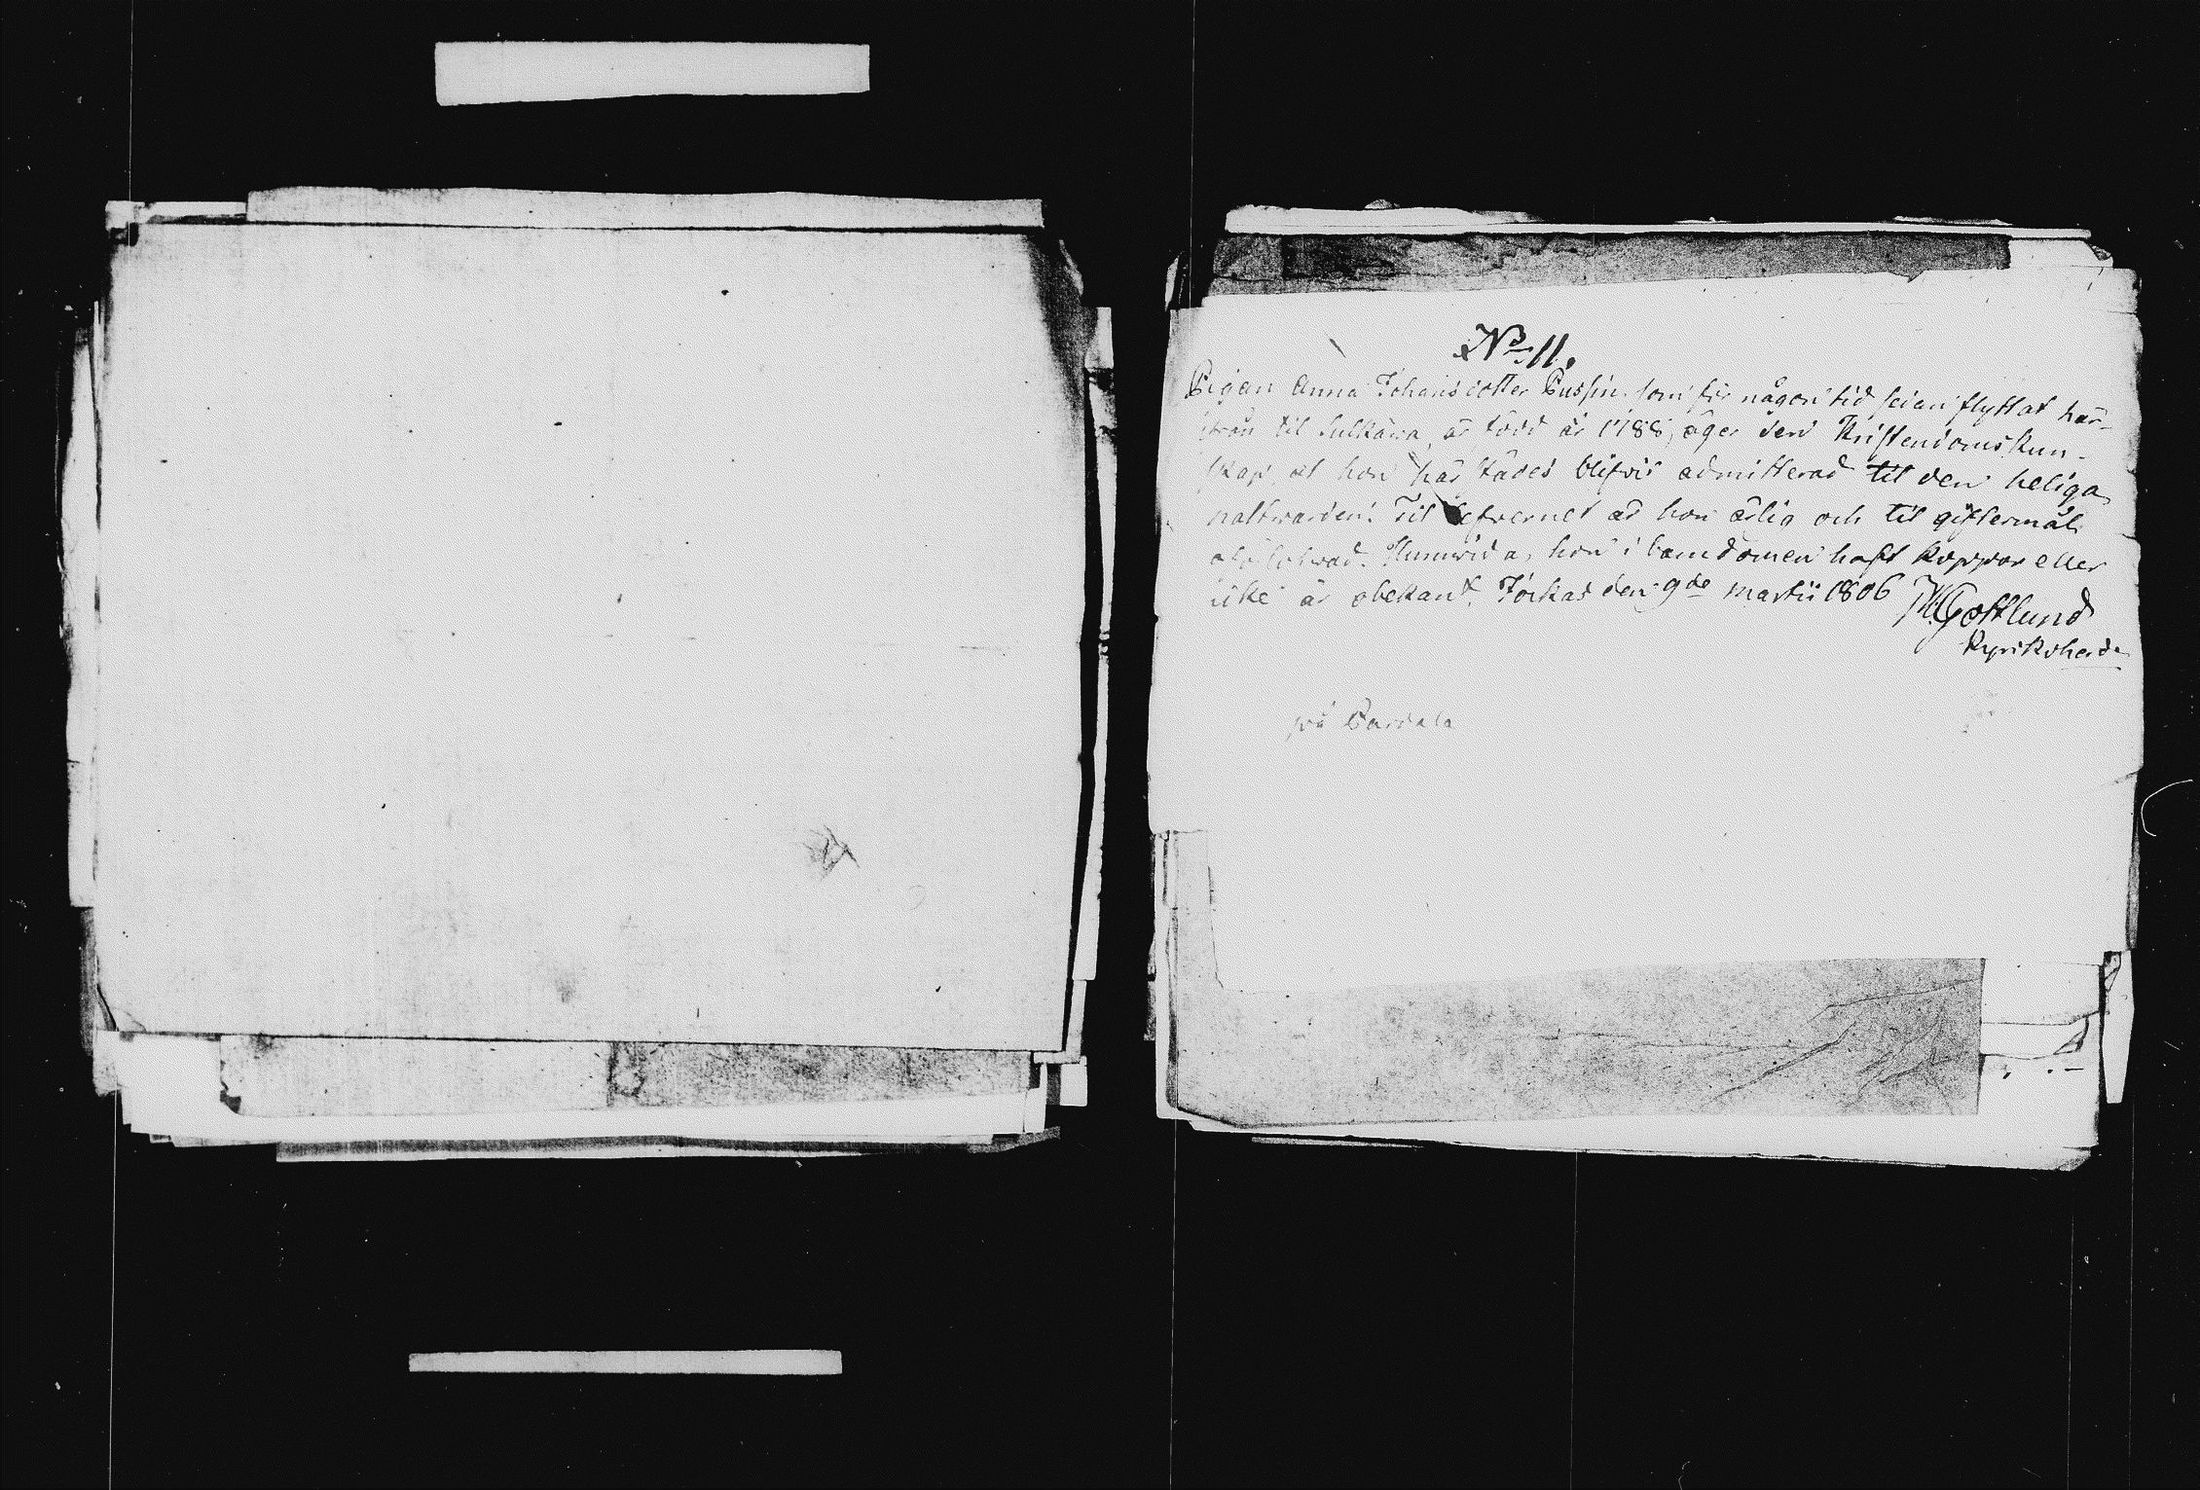 No 11.
Pigan Anna Johansdotter Pussin. som för någon tid sedan flyttat här-
ifrån til Sulkava, är född år 1788, äger den Kristendomskun-
skap, at hon härstädes blifvit admitterad til den heliga
nattvarden. Til lefvernet är hon ärlig och til giftermål
obehindrad. Hon i barndomen haft koppor eller
icke är obekant. Jockas den 9de martii 1806 Gottlund
Kyrkoherde
på Pardala